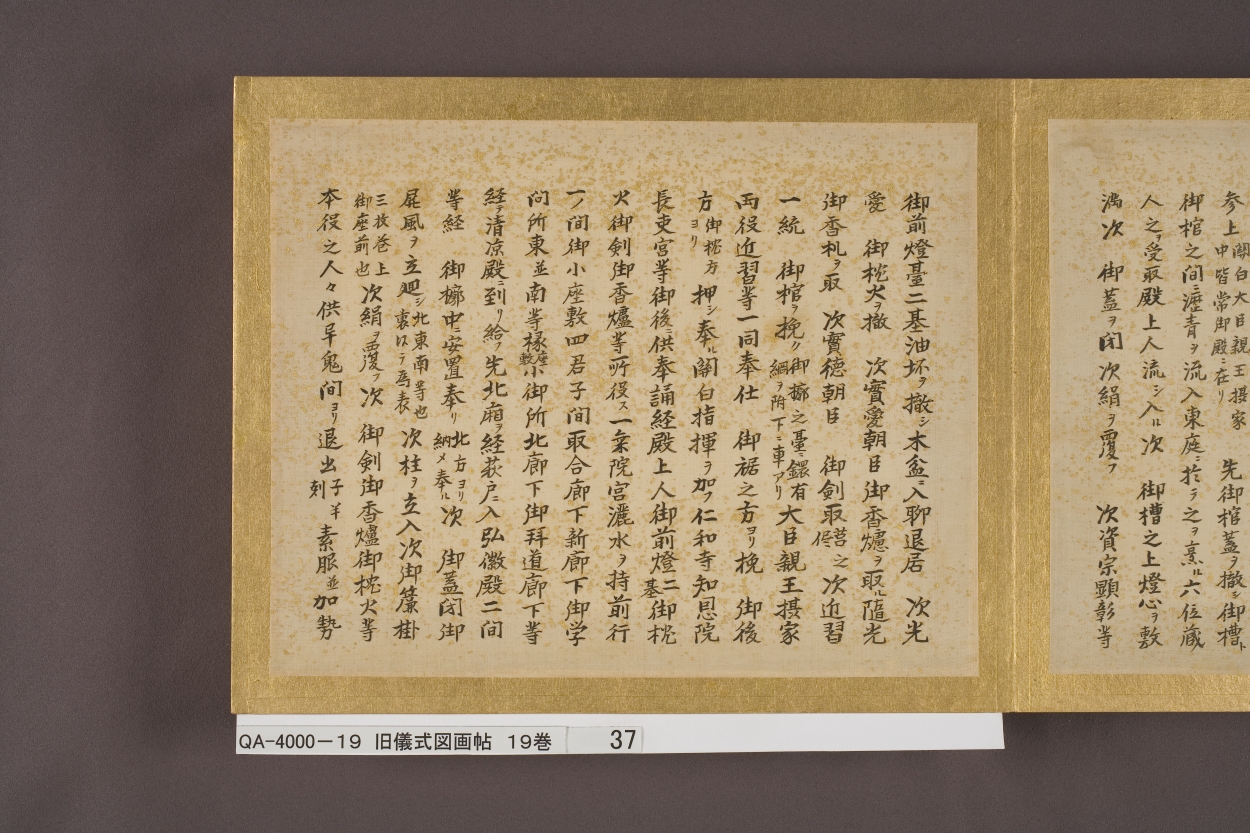 参上関白大臣親王摂家中皆常御殿ニ在リ 先御棺蓋ヲ撤シ御槽ト
御棺之間ニ瀝青ヲ流入東庭ニ於テ之ヲ烹ル六位蔵
人之ヲ受取殿上人流シ入ル次 御槽之上燈心ヲ敷
満次 御蓋ヲ閉 次絹ヲ覆フ 次資宗顕彰等
御前燈臺二基油坏ヲ撤シ木盆ニ入聊退居 次光
愛 御枕火ヲ撤 次實愛朝臣御香爐ヲ取ル隨光
御香札ヲ取 次實徳朝臣 御剣取莒之 次近習
一統 御棺ヲ挽ク御擲之臺ニ鐶有綱ヲ附下ニ車アリ大臣親王摂家
両役近習等一同奉仕 御裾之方ヨリ挽 御後
方御枕方ヨリ 押シ奉ル関白指揮ヲ加フ仁和寺知恩院
長吏宮等御後ニ供奉誦経殿上人御前燈二基御枕
火御剣御香爐等所役ス一桒院宮灑水ヲ持前行
一ノ間御小座敷四君子間取合廊下新廊下御学
問所東並南等椽座敷小御所北廊下御拝道廊下等
経テ清凉殿ニ到リ給フ先北廂ヲ経荻戸ニ入弘徽殿二間
等経 御擲中ニ安置奉リ北方ヨリ納メ奉ル次 御蓋閉御
屏風ヲ立廻シ北東南等也裏ロテ為表次柱ヲ立入次御簾掛
三枚巻上御座前也次絹ヲ覆フ次 御剣御香爐御枕火等
本役之人々供早鬼間ヨリ退出子半刻 素服並加勢
QA-4000-19 旧儀式図画帖 19巻 37